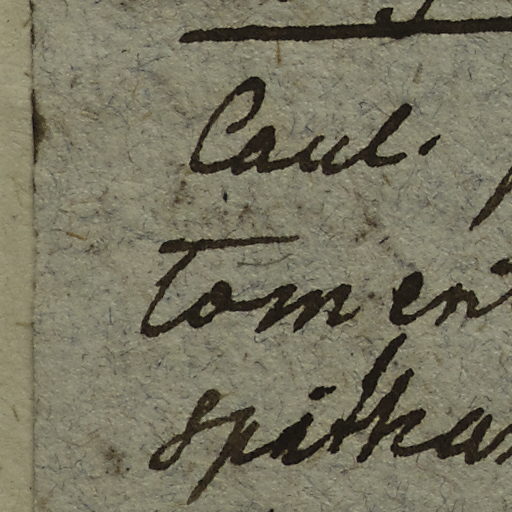 Caul.
toment
spitham